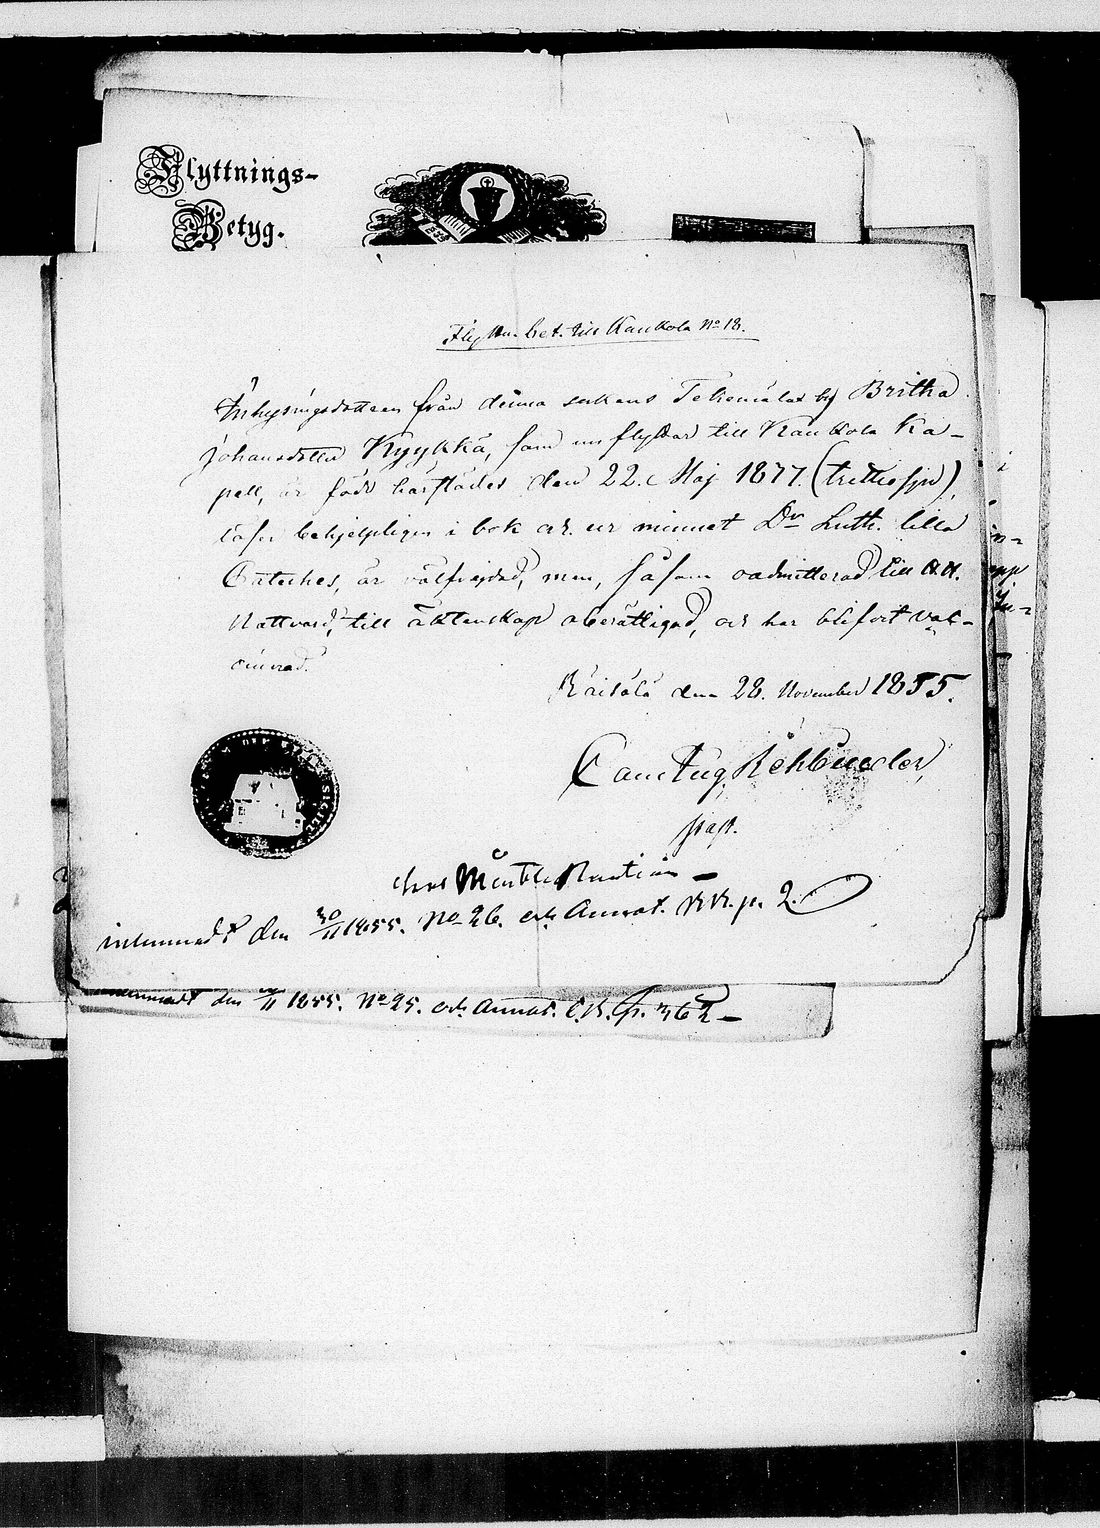 Flyttnings-
Betyg.
Flyttn. bet. till Kaukola No 18.
Inhysingsdottren från denna sockens Tehenälax by Britha
Johansdotter Kyykkä, som nu flyttar till Kaukola Ka-
pell, är född härstädes den 22. Maj 1877. (trettiosju),
läser behjelpligen i bok och ur minnet Dr Luth. lilla
Cateches, är välfrejdad, men, såsom oadmitterad till H.H.
Nattvard, till äktenskap oberättigad, och har blifvit vac-
cinerad.
Räisälä den 28. November 1855.
past.
inlemnadt den 30/11 1855. No 26. och Annot. p. 2.
den /11 1855. No 25. och Annot. p. 362